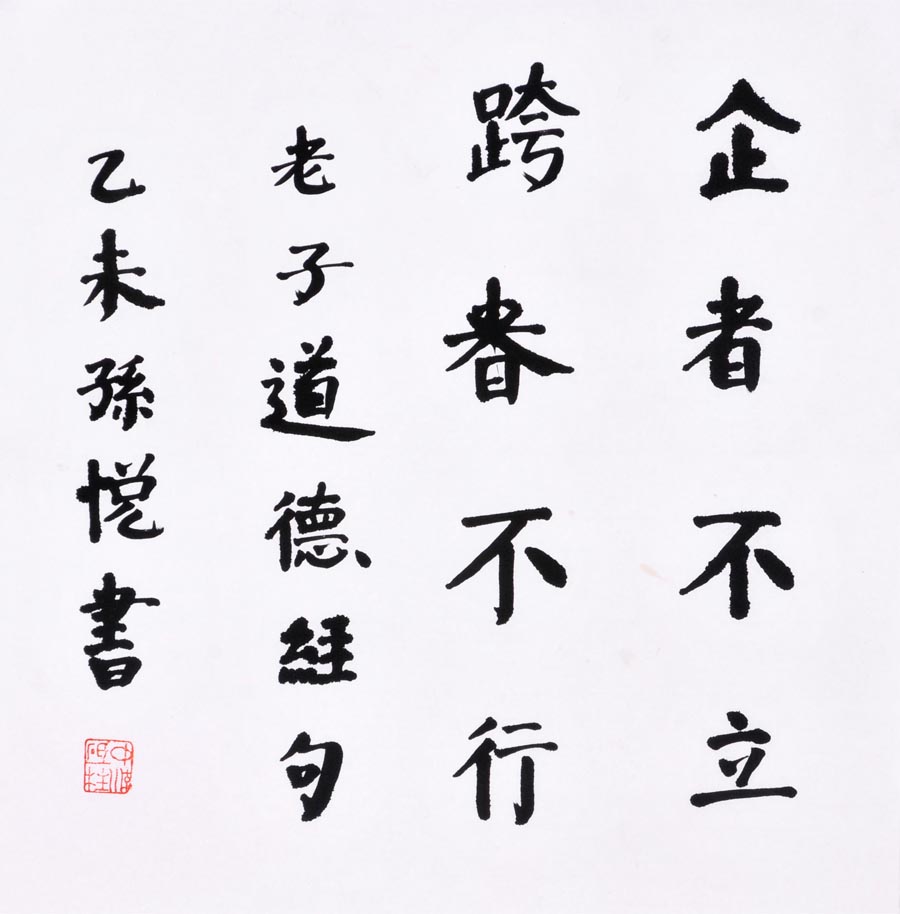 企者不立
跨者不行
老子道德經句
乙未孫悅書